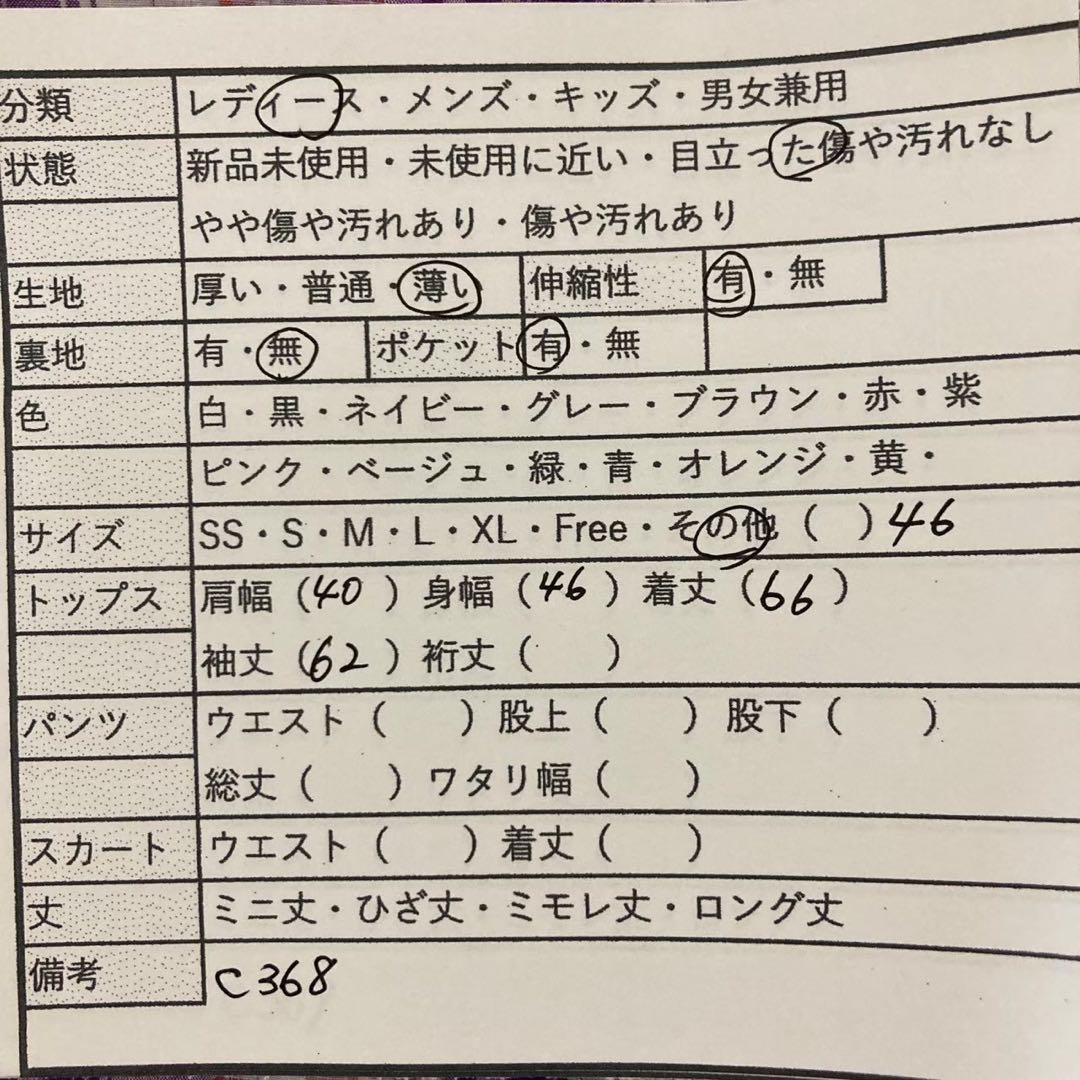 分類 レディース・メンズ・キッズ・男女兼用
状態 新品未使用・未使用に近い・目立った傷や汚れなし
やや傷や汚れあり・傷や汚れあり
生地 厚い・普通・薄い 伸縮性 有・無
裏地 有・無 ポケット 有・無
色 白・黒・ネイビー・グレー・ブラウン・赤・紫
ピンク・ベージュ・緑・青・オレンジ・黄・
サイズ SS・S・M・L・XL・Free・その他（ ）46
トップス 肩幅（40）身幅（46）着丈（66）
袖丈（62）裄丈（ ）
パンツ ウエスト（ ）股上（ ）股下（ ）
総丈（ ）ワタリ幅（ ）
スカート ウエスト（ ）着丈（ ）
丈 ミニ丈・ひざ丈・ミモレ丈・ロング丈
備考 C368